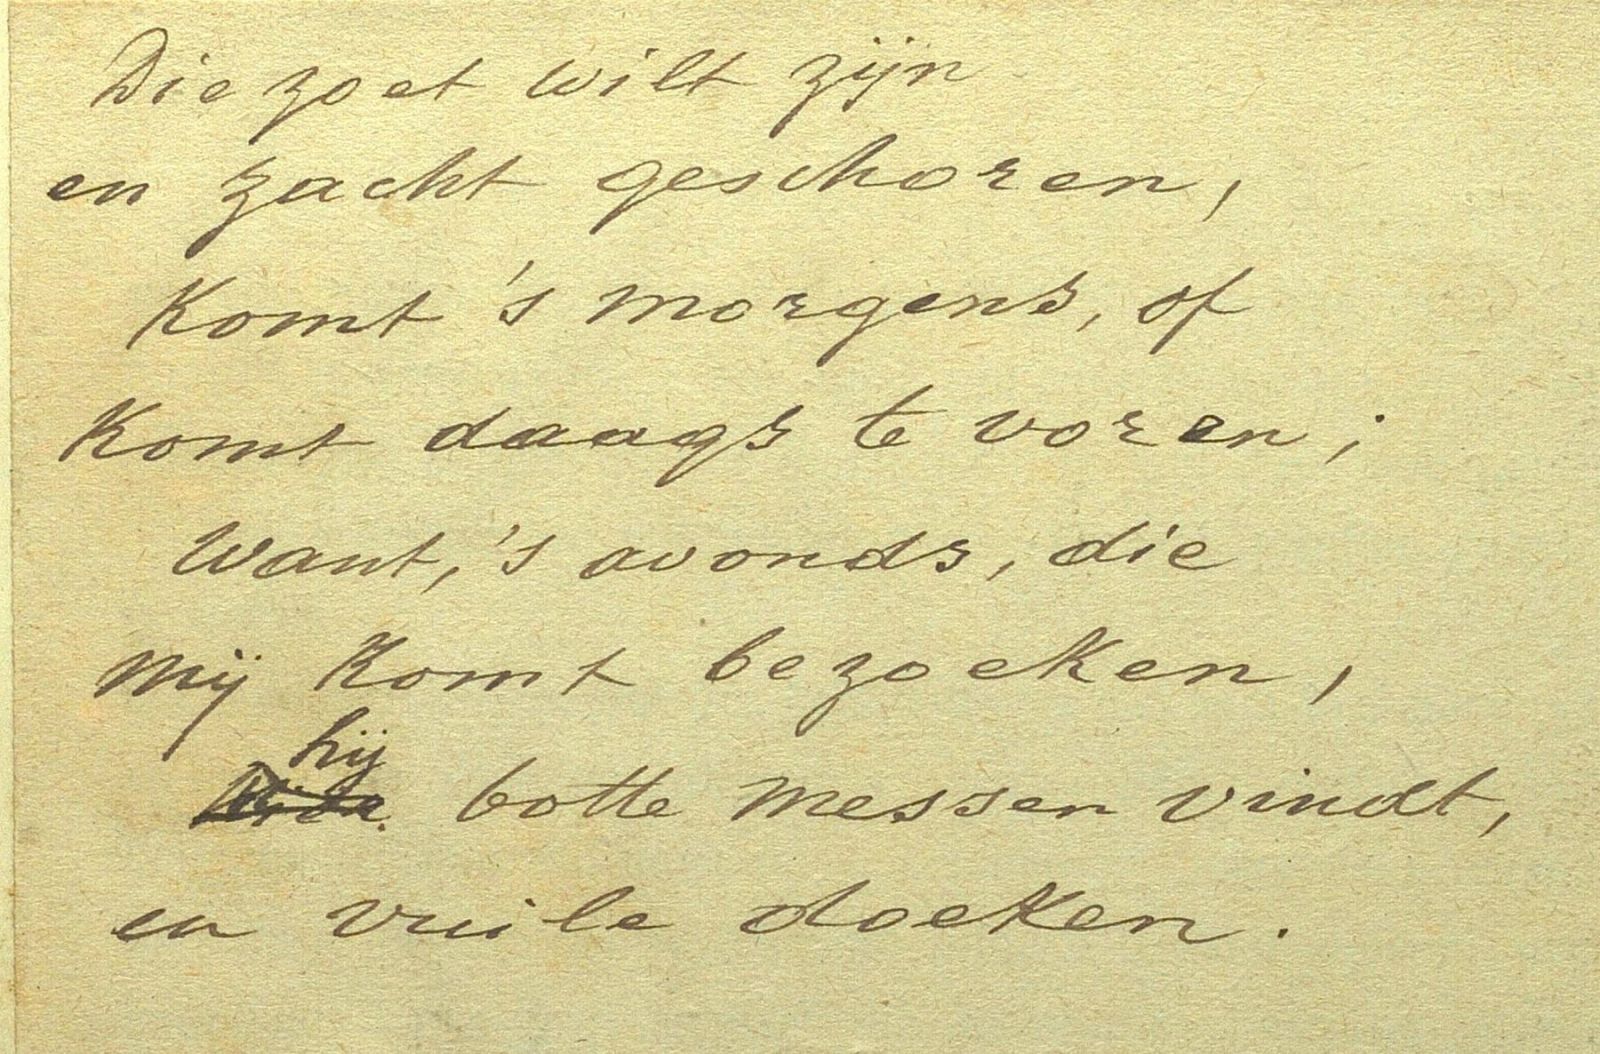 Die zoet wilt zijn
en zacht geschoren,
Komt 's morgens, of
Komt daags te voren;
Want, 's avonds, die
Mij komt bezoeken,
hij
botte messen vindt,
en vuile doeken.